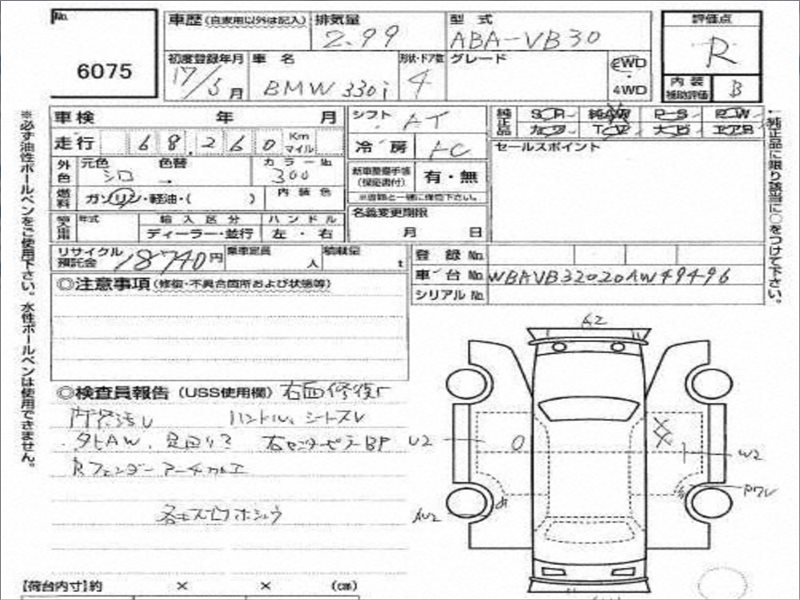 No.
6075
車歴(自家用以外は記入)
排気量
2.99
型式
ABA-VB30
評価点
R
初度登録年月
17/5月
車名
BMW 330i
形状・ドア数
4
グレード
2WD
4WD
内装
補助評価
B
車検 年 月
走行 68,260 Km マイル
外色
元色
シロ
色替
カラーNo.
300
燃料
ガソリン・軽油・( )
内装色
年式
輸入区分
ディーラー・並行
ハンドル
左・右
シフト
AT
冷房
AC
新車整備手帳
(保証書付)
有・無
※書類と一緒に保管下さい。
名義変更期限
月 日
純正品
SR
純AW
PS
PW
カワ
TV
ナビ
エアB
セールスポイント
リサイクル預託金
18740円
乗車定員
人
積載量
t
登録No.
車台No.
WBAVB32020AW49496
シリアルNo.
◎注意事項(修復・不具合箇所および状態等)
◎検査員報告(USS使用欄)
右面修復
内装汚レ ハンドル、シートスレ
社外AW、足回り? 右センターピラーBP
Rフェンダーアーチカルエ
【荷台内寸】約 × × (cm)
※必ず油性ボールペンをご使用下さい。水性ボールペンは使用できません。
←純正品に限り該当に○をつけて下さい。
G2
U2
W2
AU2